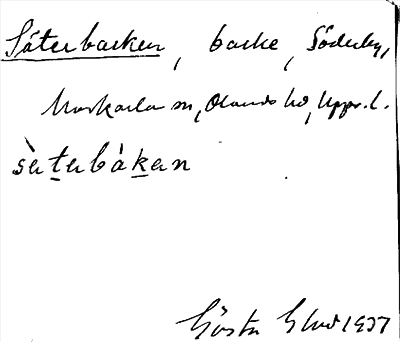 Säterbacken, backe, Söderby,
Morkarla sn, Olands hd, Upps. l.
sè̀terbàken
Gösta Elud 1937